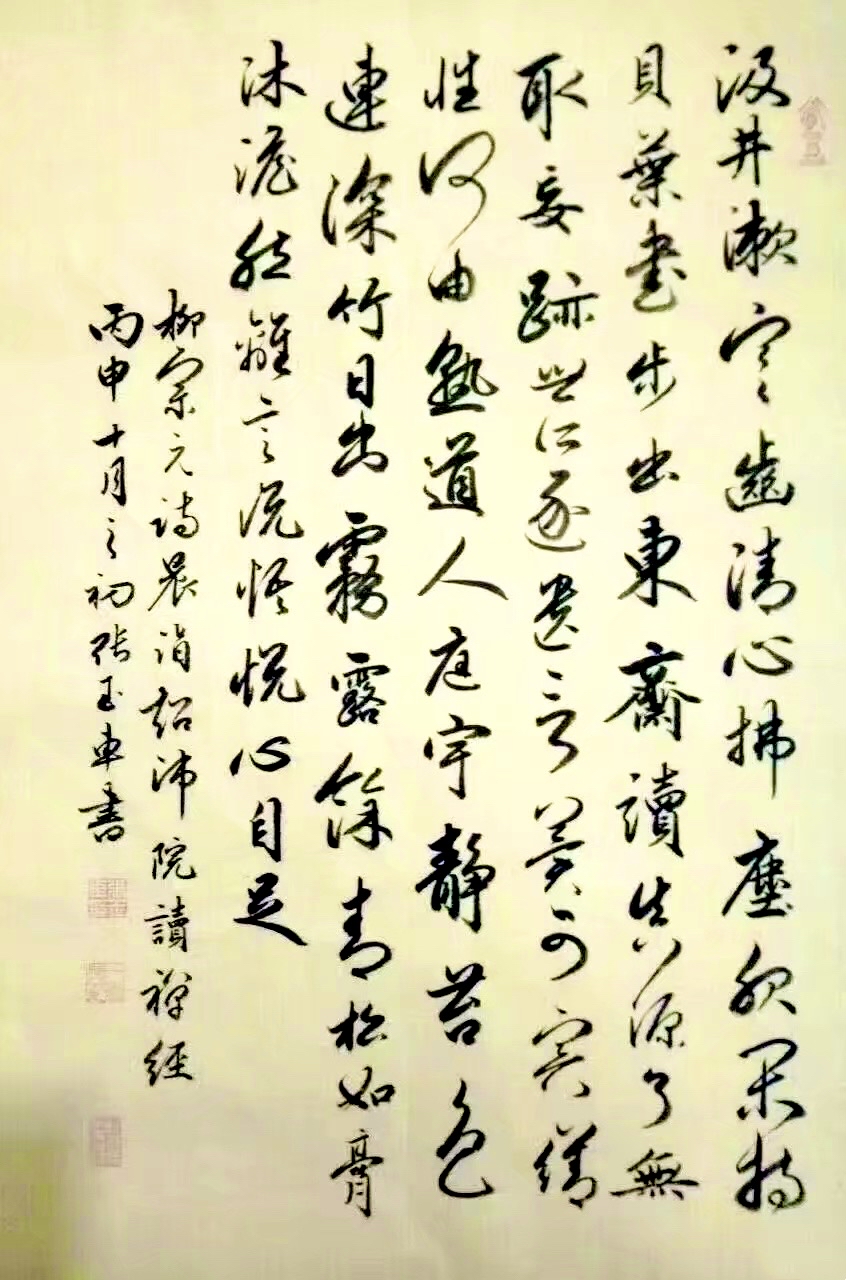 汲井漱寒齒清心拂塵服閑持
貝葉書步出東齋讀真源了無
取妄跡世所逐遺言冀可冥繕
性何由熟道人庭宇靜苔色
連深竹日出霧露餘青松如膏
沐澹然離言說悟悅心自足
柳宗元詩晨詣超師院讀禪經
丙申十月之初張玉車書